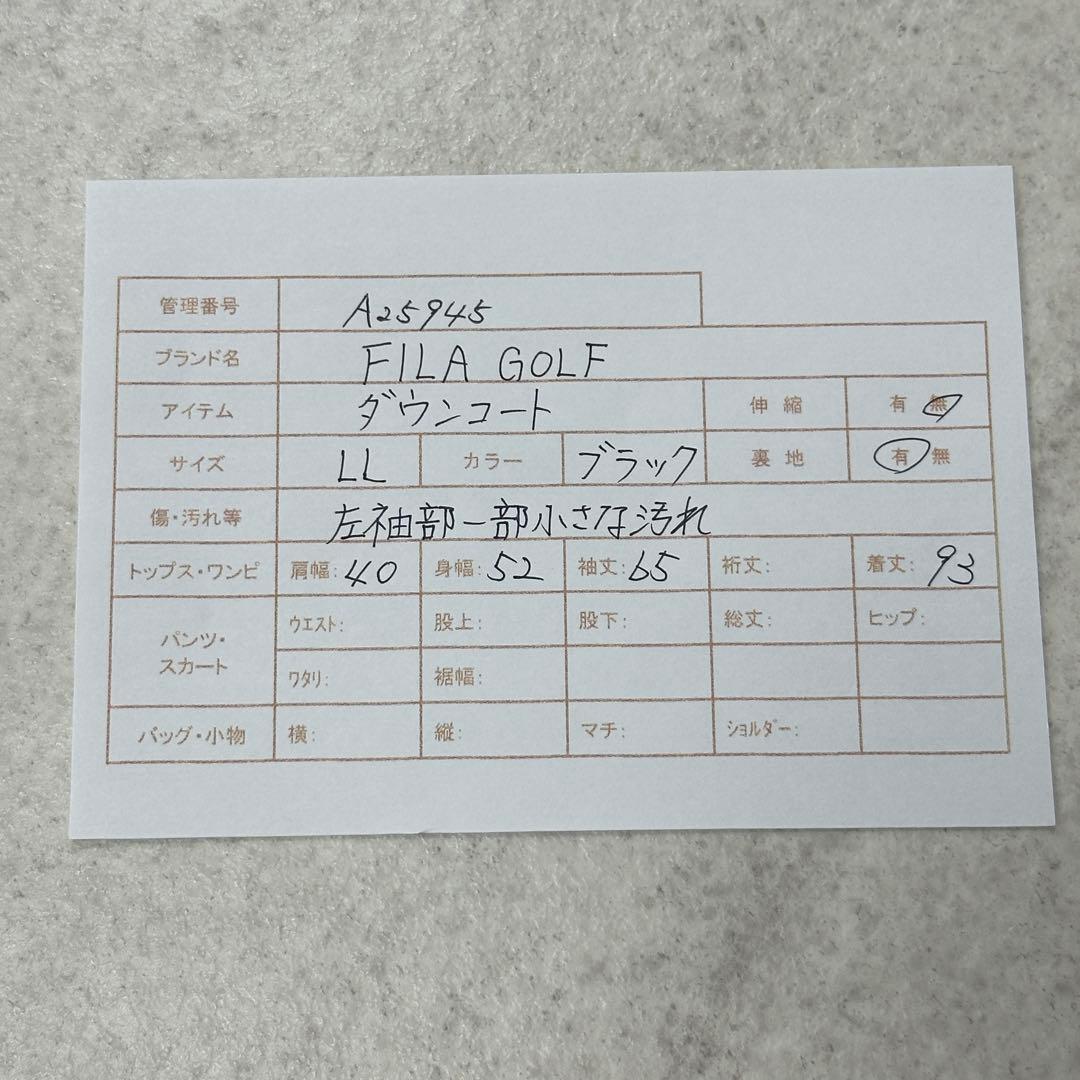 管理番号 A25945
ブランド名 FILA GOLF
アイテム ダウンコート 伸縮 有 無
サイズ LL カラー ブラック 裏地 有 無
傷・汚れ等 左袖部一部小さな汚れ
トップス・ワンピ 肩幅: 40 身幅: 52 袖丈: 65 裄丈: 着丈: 93
パンツ・スカート ウエスト: 股上: 股下: 総丈: ヒップ:
ワタリ: 裾幅:
バッグ・小物 横: 縦: マチ: ショルダー: